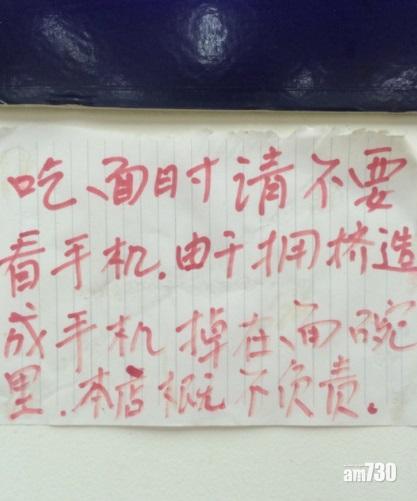 吃面时请不要
看手机.由于拥挤造
成手机掉在面碗
里.本店概不负责.
am730